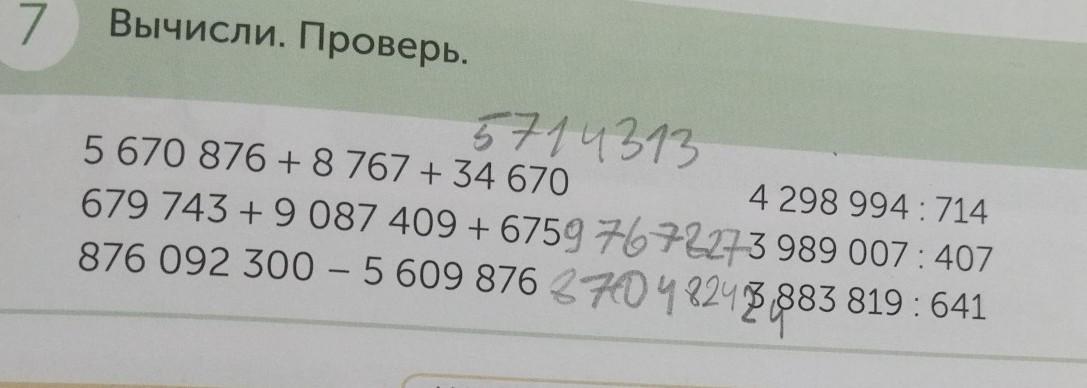 7 Вычисли. Проверь.
5714313
5 670 876 + 8 767 + 34 670
679 743 + 9 087 409 + 675 9767827
876 092 300 – 5 609 876 870482424
4 298 994 : 714
3 989 007 : 407
3 883 819 : 641